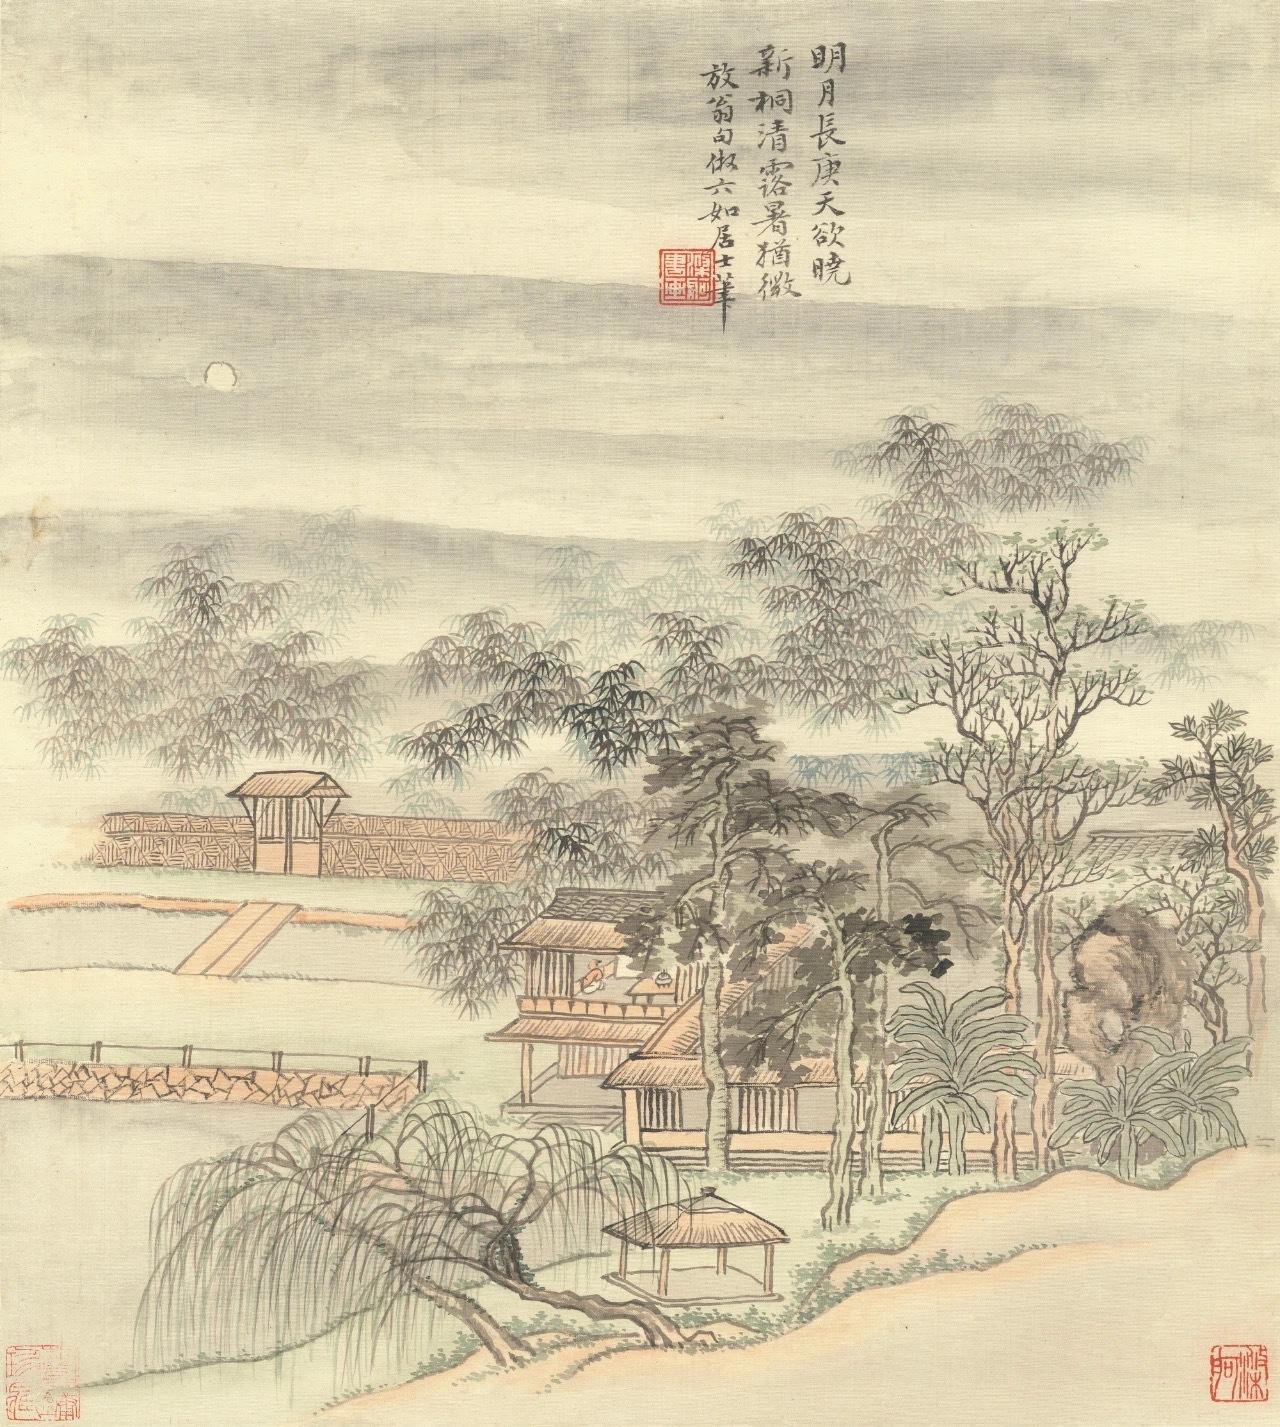 明月長庚天欲曉
新桐清露暑猶微
放翁句倣六如居士筆